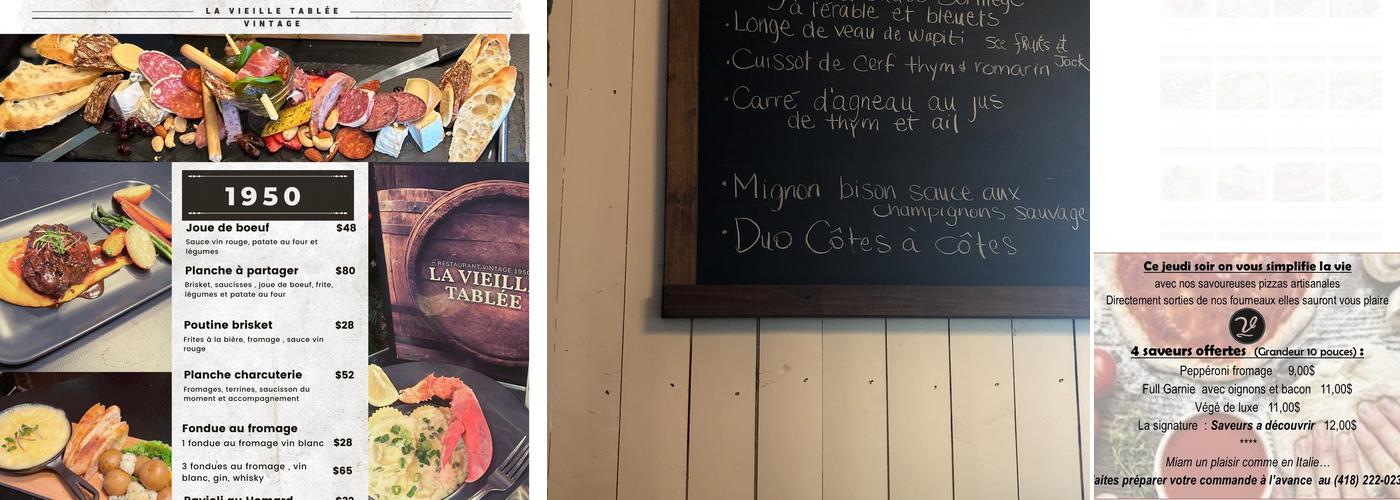 LA VIEILLE TABLÉE
VINTAGE
1950
Joue de boeuf $48
Sauce vin rouge, patate au four et
légumes
Planche à partager $80
Brisket, saucisses , joue de boeuf, frite,
légumes et patate au four
Poutine brisket $28
Frites à la bière, fromage , sauce vin
rouge
Planche charcuterie $52
Fromages, terrines, saucisson du
moment et accompagnement
Fondue au fromage
1 fondue au fromage vin blanc $28
3 fondues au fromage , vin
blanc, gin, whisky $65
Ravioli au Homard
RESTAURANT VINTAGE 1950
LA VIEILL
TABLÉE
à l'érable et bleuets
· Longe de veau de Wapiti sce fruits et
Jack
· Cuissot de Cerf thym & romarin
· Carré d'agneau au jus
de thym et ail
· Mignon bison sauce aux
Champignons sauvage
· Duo Côtes à côtes
Ce jeudi soir on vous simplifie la vie
avec nos savoureuses pizzas artisanales
Directement sorties de nos fourneaux elles sauront vous plaire
4 saveurs offertes (Grandeur 10 pouces) :
Peppéroni fromage 9,00$
Full Garnie avec oignons et bacon 11,00$
Végé de luxe 11,00$
La signature : Saveurs a découvrir 12,00$
****
Miam un plaisir comme en Italie…
aites préparer votre commande à l'avance au (418) 222-02